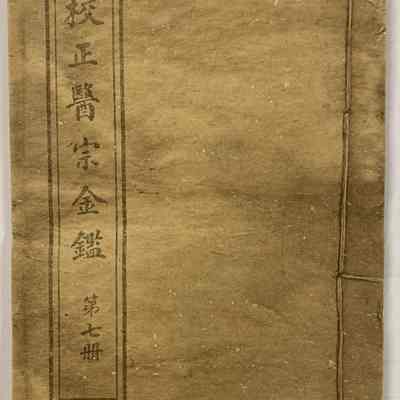 校正醫宗金鑑
第七册